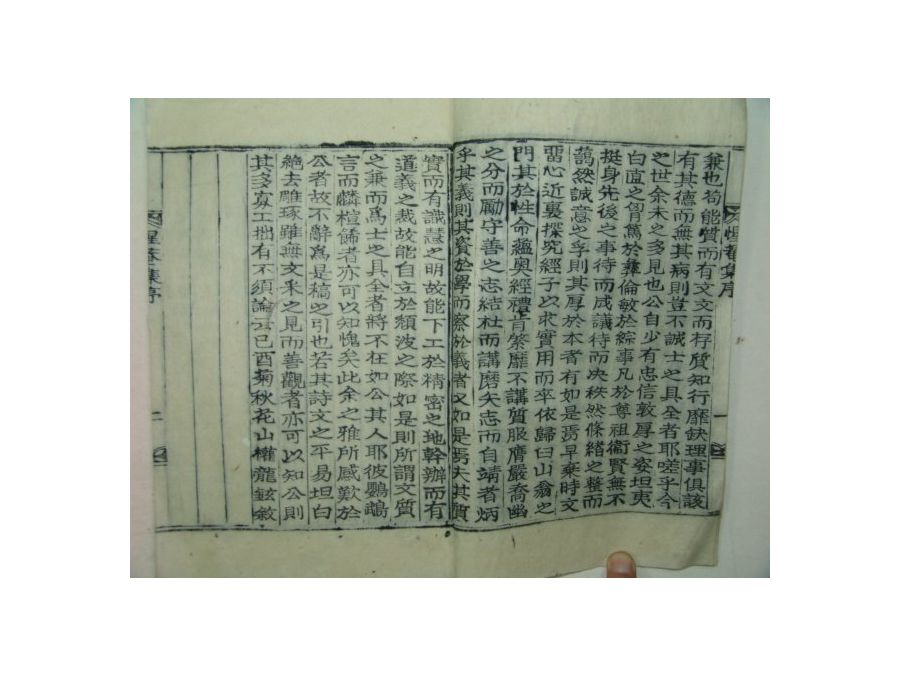 兼也苟能質而有文文而存質知行靡缺理事俱該
有其德而無其病則豈不誠士之具全者耶嗟乎今
之世余未之多見也公自少有忠信敦厚之姿坦夷
白直之胷篤於彝倫敏於綜事凡於尊祖衛賢無不
挺身先後之事待而成議待而决秩然條緖之整而
藹然誠意之孚則其厚於本者有如是焉早棄時文
留心近裏探究經子以求實用而卒依歸曰山翁之
門其於性命蘊奥經禮肯綮靡不講質服膺嚴喬幽
之分而勵守善之志結社而講磨矢志而自靖者炳
乎其義則其資於學而察於義者又如是焉夫其質
實而有識慧之明故能下工於精密之地幹辦而有
道義之裁故能自立於頹波之際如是則所謂文質
之兼而爲士之具全者將不在如公其人耶彼鸚鵡
言而麟楦飾者亦可以知愧矣此余之雅所感歎於
公者故不辭爲是稿之引也若其詩文之平易坦白
絶去雕琢雖無文采之見而善觀者亦可以知公則
其多寡工拙有不須論云己酉菊秋花山權龍鉉敘
惺菴集序
一
惺菴集序
二